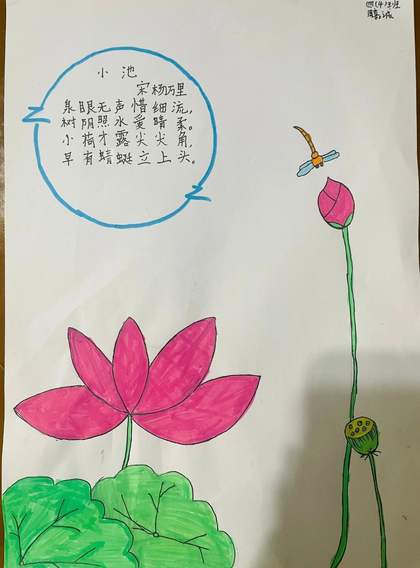 小池
宋杨万里
泉眼无声惜细流，
树阴照水爱晴柔。
小荷才露尖尖角，
早有蜻蜓立上头。